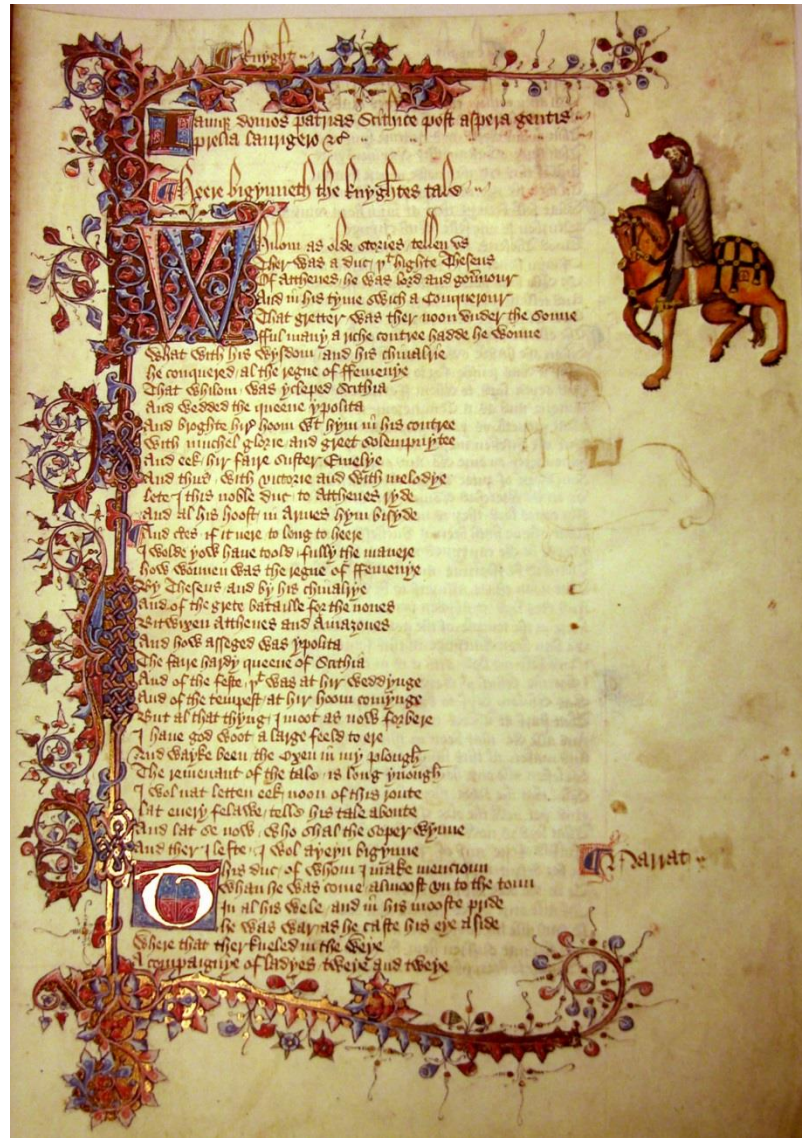 ¶ Knyght
Iamque domos patrias Scithice post aspera gentis
prelia laurigero &c
¶ Heere bigynneth the knyghtes tale
Whilom as olde stories tellen vs
Ther was a duc þt highte Theseus
Of Atthenes he was lord and gouernour
And in his tyme swich a Conquerour
That gretter was ther noon vnder the sonne
fful many a riche contree hadde he wonne
What with his wysdom and his chiualrie
he conquered al the regne of ffemenye
That whilom was ycleped Scithia
And wedded the queene ypolita
And broghte hir hoom wt hym in his contree
With muchel glorie and greet solempnytee
And eek hir faire suster Emelye
And thus with victorie and with melodye
lete I this noble duc to Atthenes ryde
And al his hoost in Armes hym bisyde
¶ And certes if it nere to long to heere
I wolde yow haue toold fully the manere
how wonnen was the regne of ffemenye
By Theseus and by his chiualrye
And of the grete bataille for the nones
Bitwixen Atthenes and Amazones
And how asseged was ypolita
The faire hardy queene of Scithia
And of the feste þt was at hir weddynge
And of the tempest at hir hoom comynge
But al that thyng I moot as now forbere
I haue god woot a large feeld to ere
And wayke been the Oxen in my plough
The remenant of the tale is long ynough
I wol nat letten eek noon of this route
lat euery felawe telle his tale aboute
And lat se now who shal the soper wynne
And ther I lefte I wol ayeyn bigynne
This duc of whom I make mencioun
Whan he was come almoost vn to the toun
In al his wele and in his mooste pride
he was war as he caste his eye aside
Where that ther kneled in the weye
A compaignye of ladyes tweye and tweye
¶ Narrat